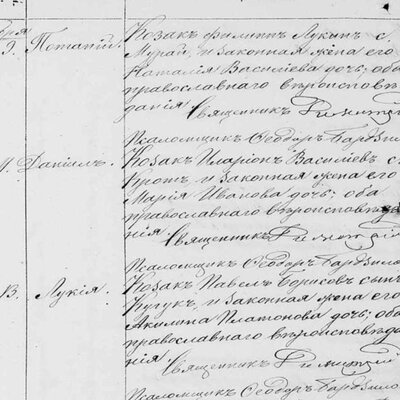 бря
9. Потапій.
Козакъ Филиппъ Лукинъ с
Мурай, и законная жена его
Наталія Васильева дочь; оба
православнаго вѣроисповѣ
данія. Священникъ
Псаломщикъ Ѳеодоръ
Даніилъ.
Козакъ Иларіонъ Васильевъ с
Кротъ, и законная жена его
Марія Иванова дочь; оба
православнаго вѣроисповѣда
нія. Священникъ
Псаломщикъ Ѳеодоръ
13. Лукія.
Козакъ Павелъ Борисовъ сынъ
Кугукъ, и законная жена его
Акилина Платонова дочь; оба
православнаго вѣроисповѣда
нія. Священникъ
Псаломщикъ Ѳеодоръ